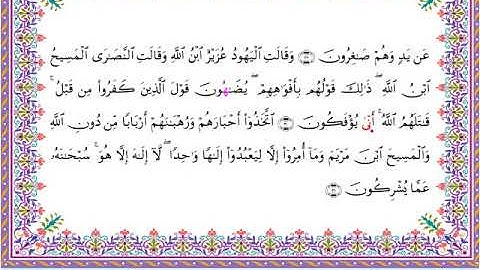 عَن يَدٍ وَهُمْ صَـٰغِرُونَ ۝ وَقَالَتِ ٱلْيَهُودُ عُزَيْرٌ ٱبْنُ ٱللَّهِ وَقَالَتِ ٱلنَّصَـٰرَى ٱلْمَسِيحُ
ٱبْنُ ٱللَّهِ ۖ ذَٰلِكَ قَوْلُهُم بِأَفْوَٰهِهِمْ ۖ يُضَـٰهِـُٔونَ قَوْلَ ٱلَّذِينَ كَفَرُوا۟ مِن قَبْلُ ۚ
قَـٰتَلَهُمُ ٱللَّهُ ۚ أَنَّىٰ يُؤْفَكُونَ ۝ ٱتَّخَذُوٓا۟ أَحْبَارَهُمْ وَرُهْبَـٰنَهُمْ أَرْبَابًا مِّن دُونِ ٱللَّهِ
وَٱلْمَسِيحَ ٱبْنَ مَرْيَمَ وَمَآ أُمِرُوٓا۟ إِلَّا لِيَعْبُدُوٓا۟ إِلَـٰهًا وَٰحِدًا ۖ لَّآ إِلَـٰهَ إِلَّا هُوَ ۚ سُبْحَـٰنَهُۥ
عَمَّا يُشْرِكُونَ ۝